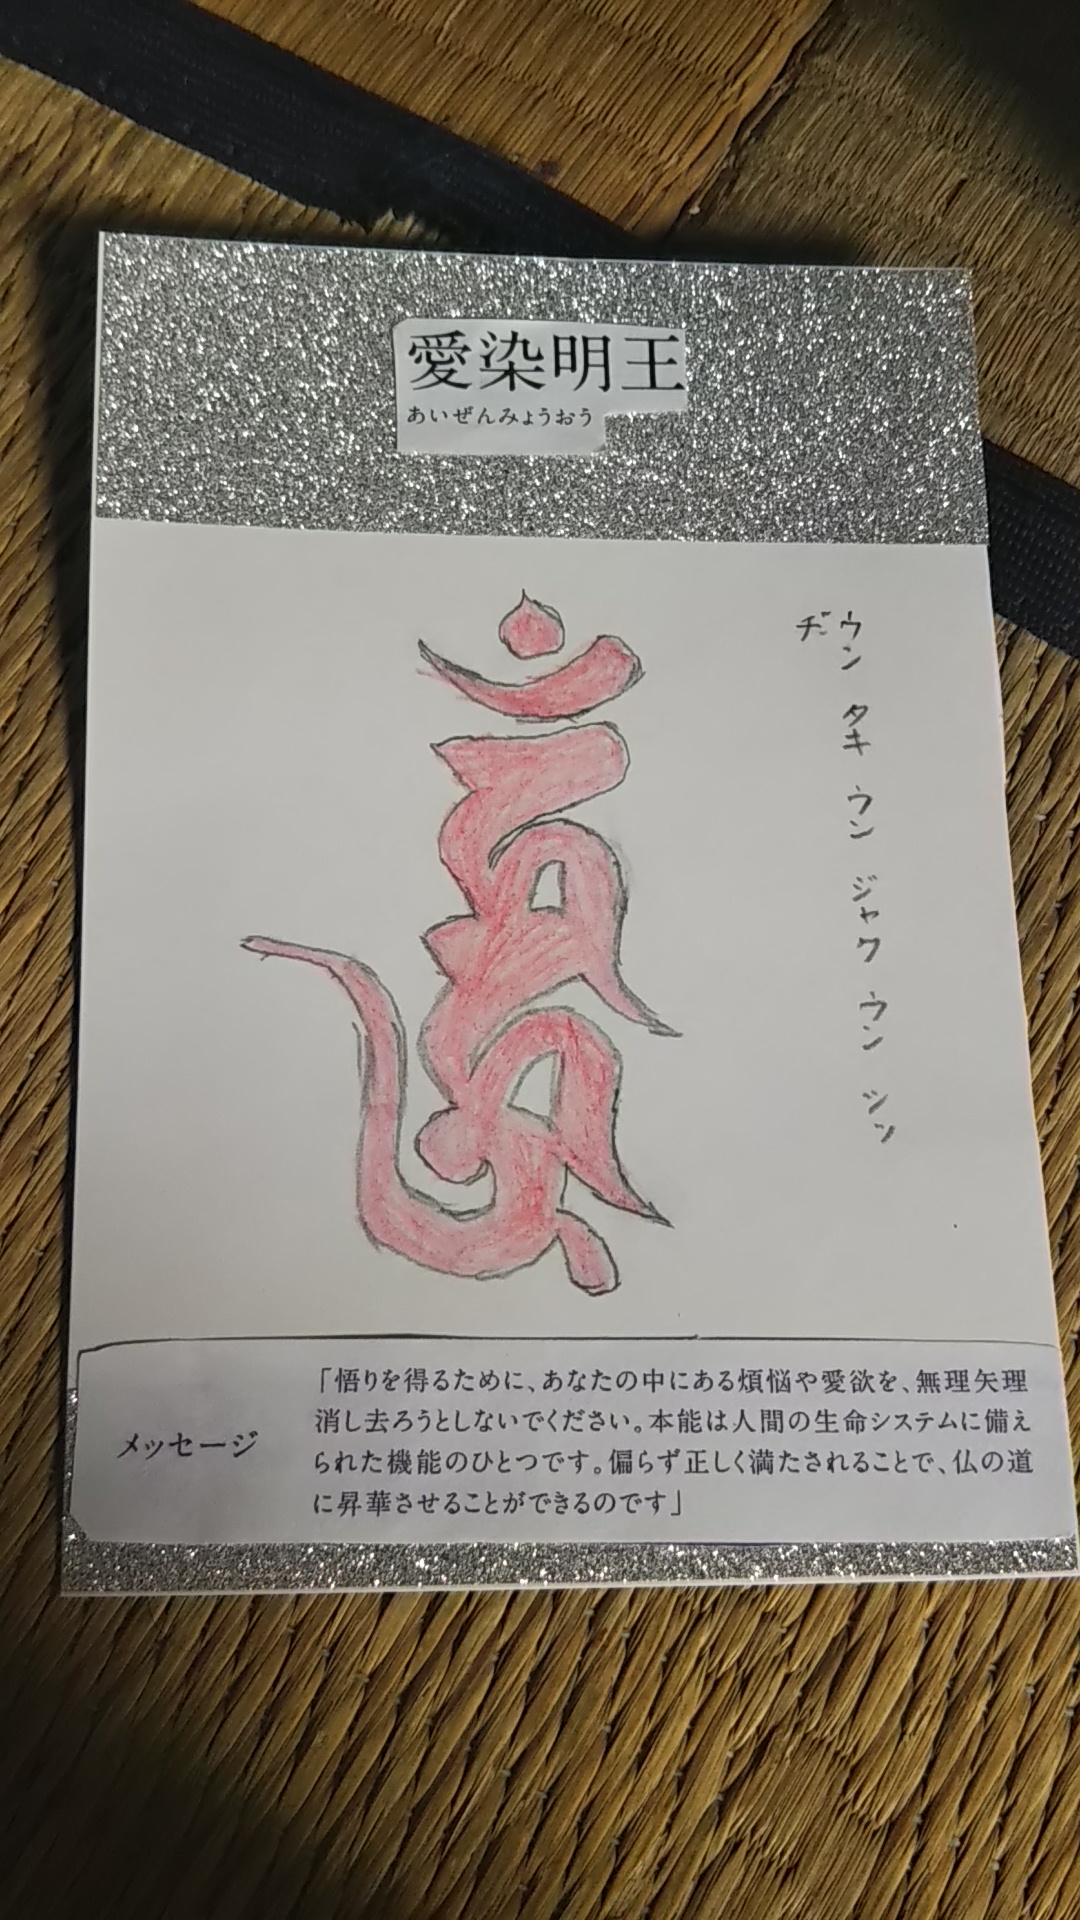 愛染明王
あいぜんみょうおう
ウン タキ ウン ジャク ウン シッ
ヂ
メッセージ
「悟りを得るために、あなたの中にある煩悩や愛欲を、無理矢理
消し去ろうとしないでください。本能は人間の生命システムに備え
られた機能のひとつです。偏らず正しく満たされることで、仏の道
に昇華させることができるのです」